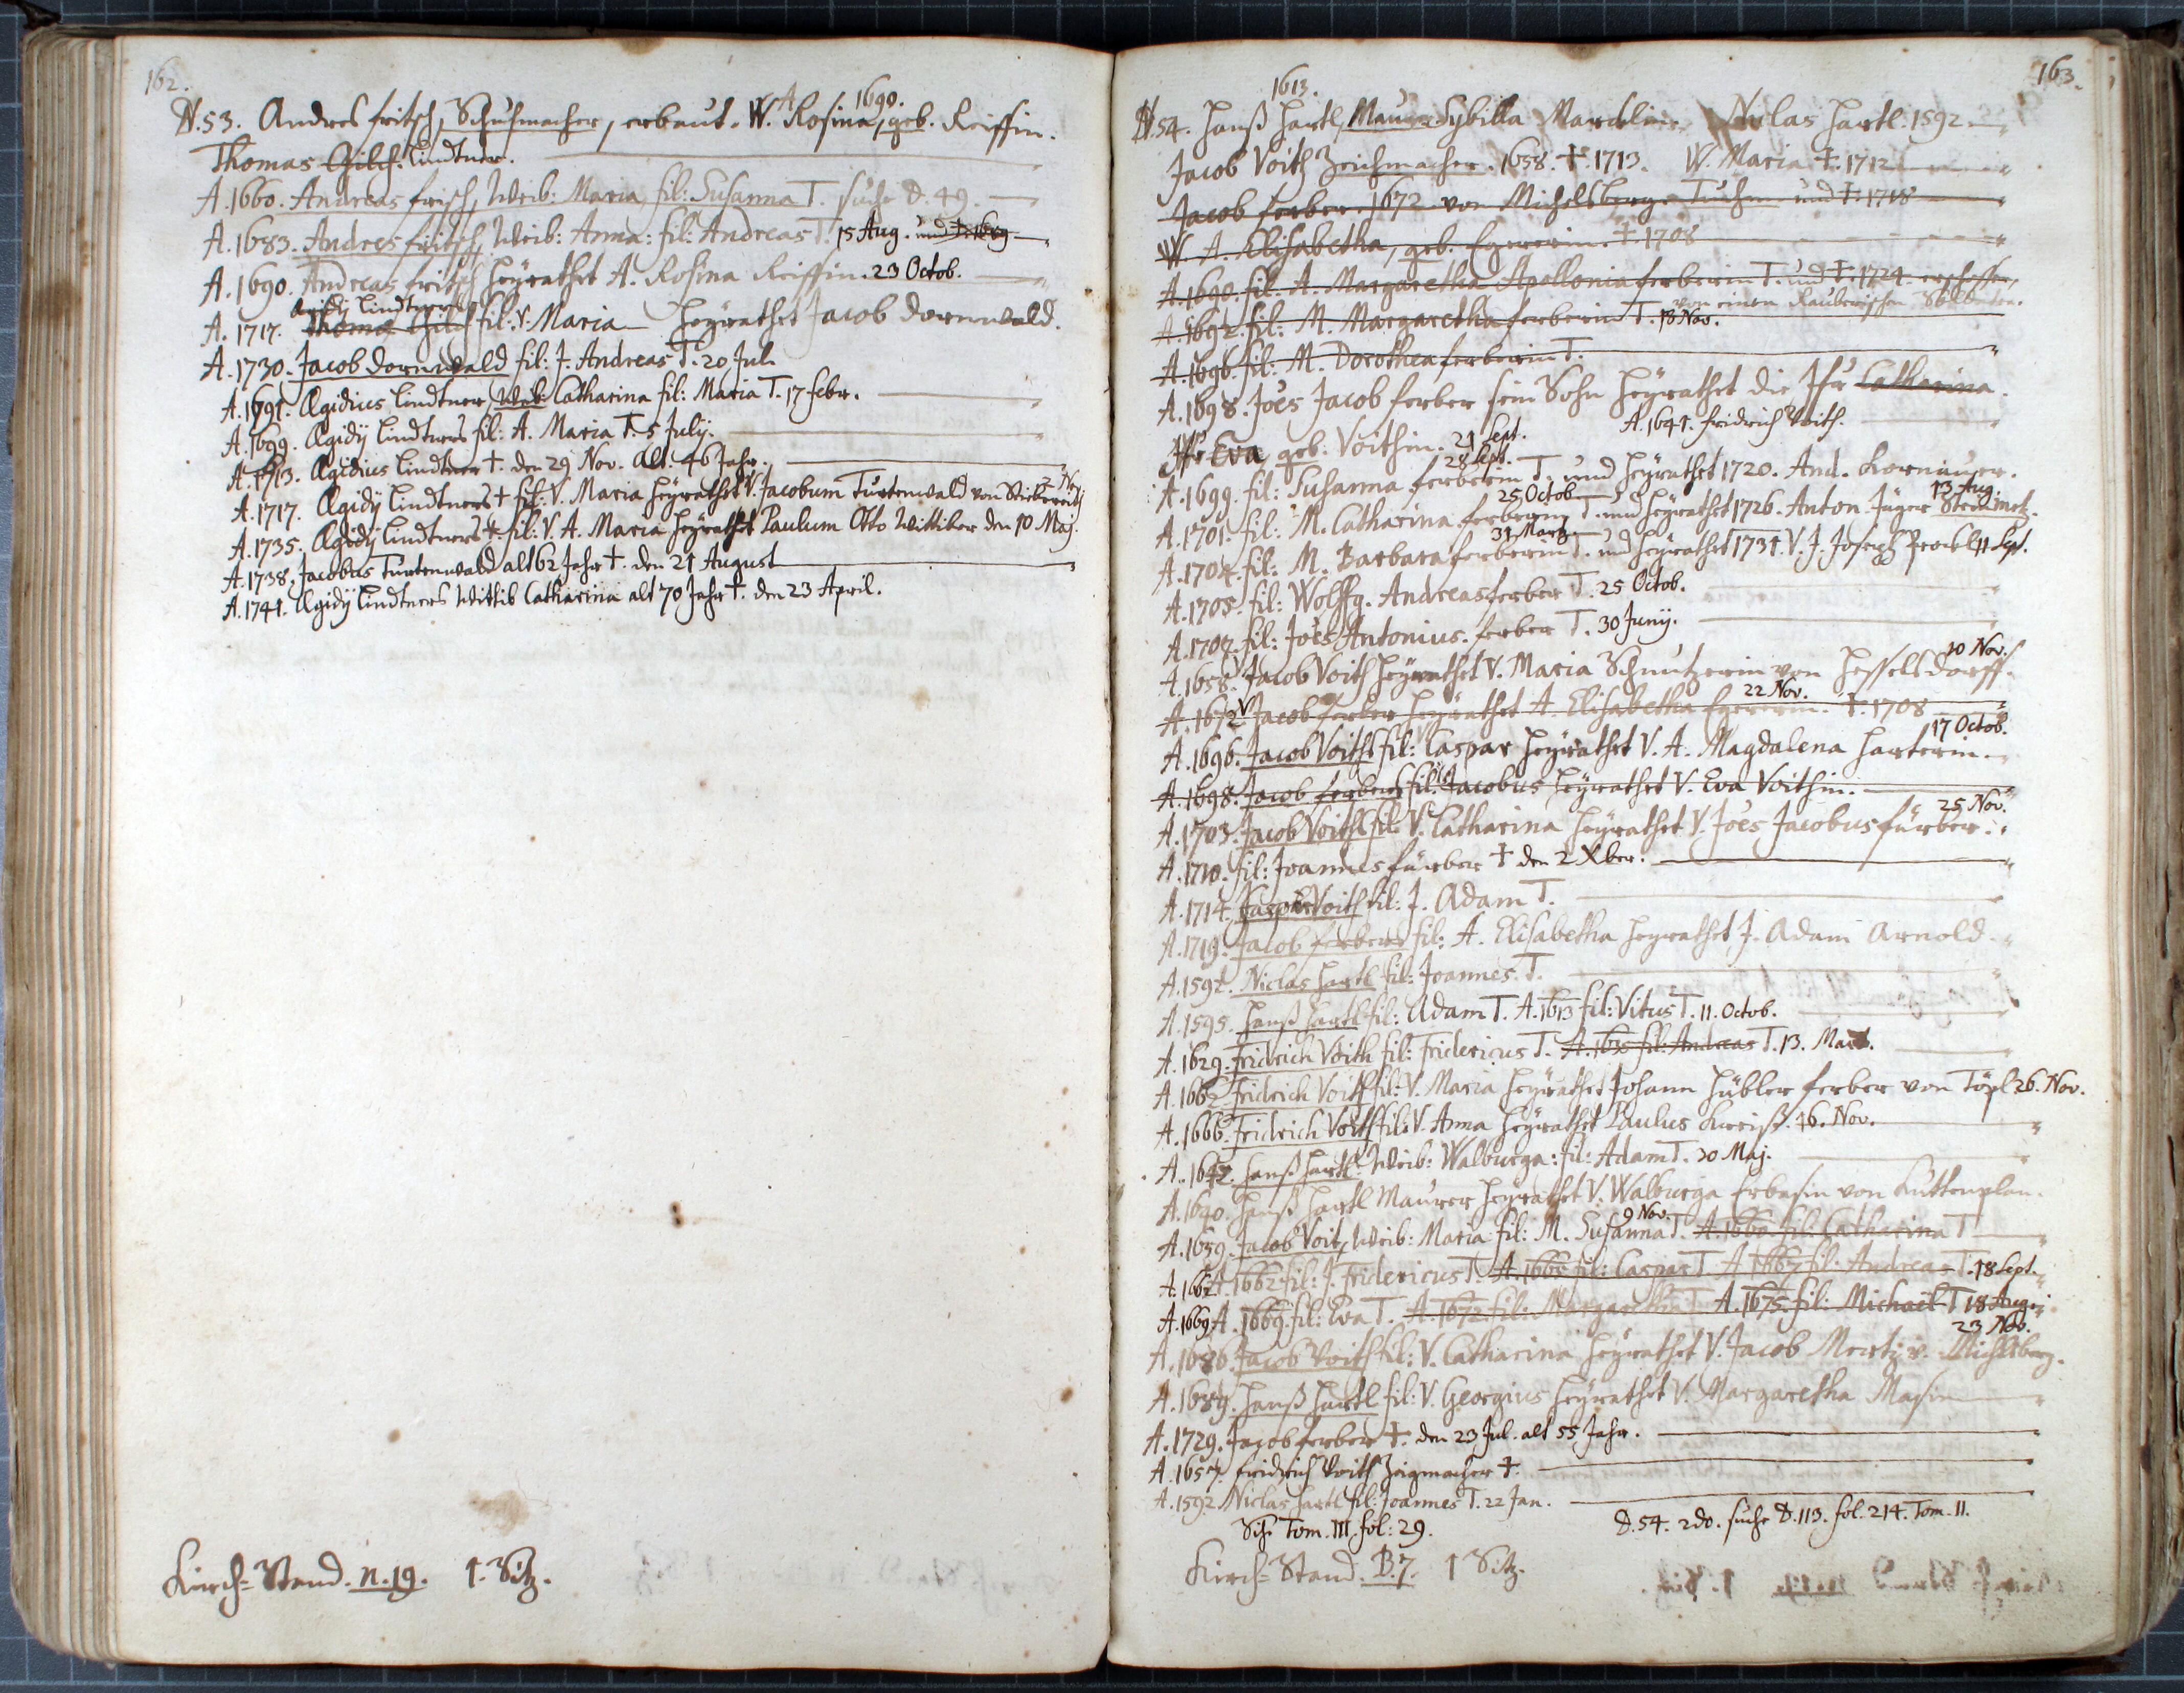 162.
N.53. Andres fritsch, Schuhmacher, erbaut. W. A. Rosina, geb. Reiffin. 1690.
Thomas Gilch. Lindtner.
A.1660. Andreas frisch, Weib: Maria, fil: Susanna T. suche N. 49.
A.1683. Andres fritsch, Weib: Anna: fil: Andreas T. 15 Aug. und
A.1690. Andreas fritsch heyrathet A. Rosina Reiffin. 23 Octob.
Aegidy Lindtners
A.1717. Thomas Gilch fil: V. Maria heyrathet Jacob Dornwald.
A.1730. Jacob Dornwald fil: J. Andreas T. 20 Jul.
A.1691. Ægidius Lindtner, Weib: Catharina fil: Maria T. 17 febr.
A.1699. Ægidÿ Lindtners fil: A. Maria T. 5 Julij.
A.1713. Ægidius Lindtner †. den 29 Nov. alt. 46 Jahr.
2 Nov.
A.1717. Ægidÿ Lindtners † fil: V. Maria heyrathet V. Jacobum Turtenwald von
A.1735. Ægidÿ Lindtners †. fil: V. A. Maria heyrathet Paulum Otto Wittiber den 10 Maj.
A.1738. Jacobus Turtenwald alt 62 Jahr †. den 21 August
A.1741. Ægidÿ Lindtners Wittib Catharina alt 70 Jahr †. den 23 April.
Kirch=Stand. n.19. 1. Sitz.
163.
1613.
N.54. Hanß Hartl, Maurer Sybilla Niclas Hartl. 1592
Jacob Voith Zeichmacher. 1658. †. 1713. W. Maria †. 1712
Jacob ferber. 1672 von Michelsberge Tuchm und †. 1718
W. A. Elisabetha, geb. Egererin. †. 1708
A.1690. fil: A. Margaretha Apollonia ferberin T. und †. 1724. erschossen,
von einen Rauberischen Soldaten.
A.1692. fil: M. Margaretha ferberin T. 18 Nov.
A.1696. fil: M. Dorothea ferberin T.
A.1698. Joës Jacob ferber sein Sohn heyrathet die Jfr Catharina.
Jfr Eva, geb. Voithin. 21 Sept. A.1641. fridrich Voith.
28 Sept.
A.1699. fil: Susanna ferberin T. und heyrathet 1720. And. Kornauer.
25 Octob. 13 Aug.
A.1701. fil: M. Catharina ferberin T. und heyrathet 1726. Anton Jäger Steinmetz.
31 Martz.
A.1704. fil: M. Barbara ferberin T. und heyrathet 1731. V. J. Joseph Prockl 11 Sept.
A.1705. fil: Wolffg. Andreas ferber T. 25 Octob.
A.1707. fil: Joës Antonius. ferber T. 30 Junij.
10 Nov.
A.1658. Jacob Voith heyrathet V. Maria Schnutzerin von Hesselsdorff.
22 Nov.
A.1672. V. Jacob ferber heyrathet A. Elisabetha Egererin. †. 1708
17 Octob.
A.1696. Jacob Voiths fil: Caspar heyrathet V. A. Magdalena Harterin.
A.1698. Jacob ferbers fil: Jacobus heyrathet V. Eva Voithin.
25 Nov.
A.1703. Jacob Voiths fil: V. Catharina heyrathet V. Joës Jacobus fürber.
A.1710. fil: Joannes fürber † den 2 Xber.
A.1714. Caspar Voith fil: J. Adam T.
A.1719. Jacob ferbers fil: A. Elisabetha heyrathet J. Adam Arnold.
A.1592. Niclas Hartl fil: Joannes. T.
A.1595. Hanß Hartl fil: Adam T. A.1613 fil: Vitus T. 11. Octob.
A.1629. Fridrich Voith fil: Fridericus T. A.1635 fil: Andreas T. 13. Mart.
A.1662 Fridrich Voith fil: V. Maria heyrathet Johann Hübler ferber von Töpl 26. Nov.
A.1666. Fridrich Voith fil: V. Anna heyrathet Paulus Kreiß. 16. Nov.
A.1642. Hanß Hartl. Weib: Walburga: fil: Adam T. 30 Maj.
A.1640. Hanß Hartl Maurer heyrathet V. Walburga Erbasin von Kuttenplan.
9 Nov.
A.1659. Jacob Voit, Weib: Maria fil: M. Susanna T. A.1660. fil: Catharina T
A.1662 A.1662 fil: J. Fridericus T. A.1665 fil: Caspar T A.1667 fil: Andreas T. 18 Sept.
A.1669 A.1669. fil: Eva T. A.1672. fil: Margaretha T A.1675. fil: Michael T 18 Aug.
23 Nov.
A.1686. Jacob Voith fil: V. Catharina heyrathet V. Jacob Mertz v. Michlsberg.
A.1689. Hanß Hartl fil: V. Georgius heyrathet V. Margaretha Masin
A.1729. Jacob ferber †. den 23 Jul. alt 55 Jahr.
A.1657. fridrich Voith Zeigmacher †.
A.1592. Niclas Hartl fil: Joannes T. 22 Jan.
Sih Tom. III. fol: 29. N.54. 2do. suche N.113. fol. 214. Tom. II.
Kirch=Stand. B.7. 1 Sitz.